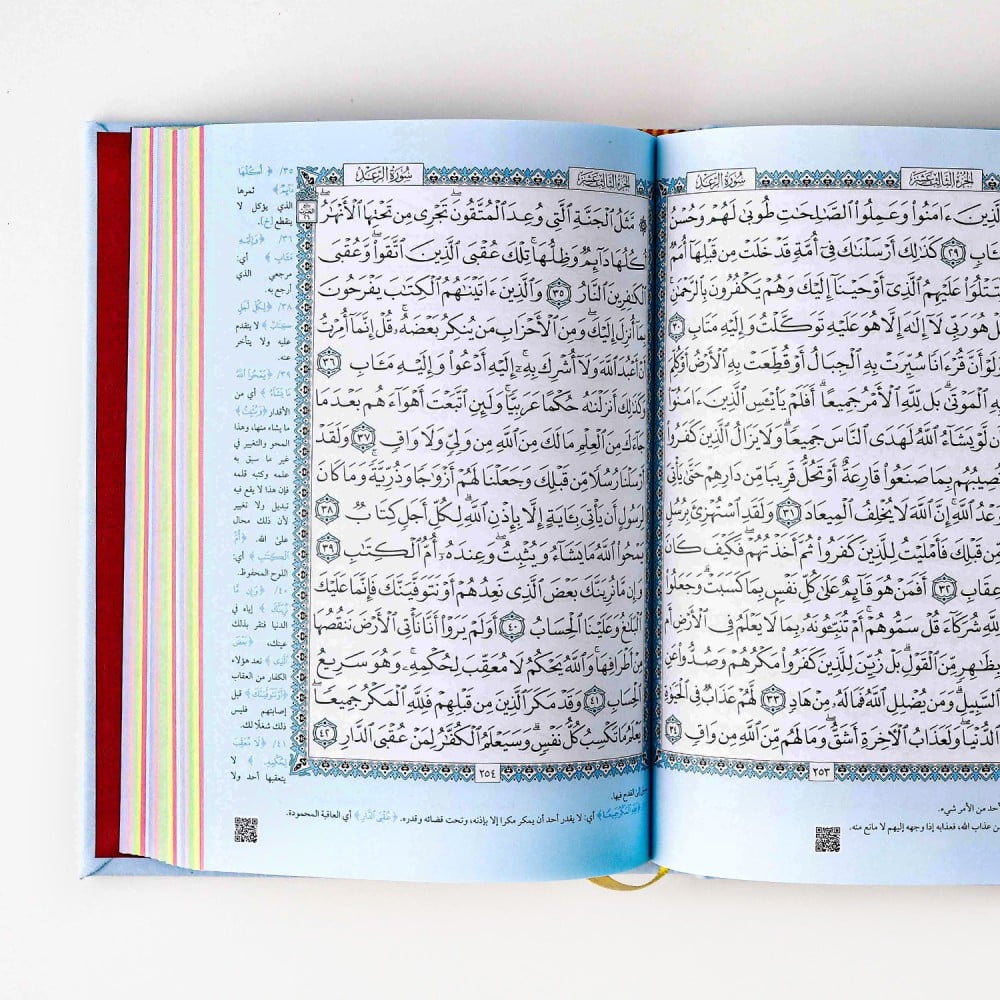 الجزء الثالث عشر
سُورَةُ الرَّعْدِ
ٱلَّذِينَ ءَامَنُوا۟ وَعَمِلُوا۟ ٱلصَّٰلِحَٰتِ طُوبَىٰ لَهُمْ وَحُسْنُ
مَـَٔابٍ ٢٩ كَذَٰلِكَ أَرْسَلْنَٰكَ فِىٓ أُمَّةٍ قَدْ خَلَتْ مِن قَبْلِهَآ أُمَمٌ
لِّتَتْلُوَا۟ عَلَيْهِمُ ٱلَّذِىٓ أَوْحَيْنَآ إِلَيْكَ وَهُمْ يَكْفُرُونَ بِٱلرَّحْمَٰنِ
قُلْ هُوَ رَبِّى لَآ إِلَٰهَ إِلَّا هُوَ عَلَيْهِ تَوَكَّلْتُ وَإِلَيْهِ مَتَابِ ٣٠
وَلَوْ أَنَّ قُرْءَانًا سُيِّرَتْ بِهِ ٱلْجِبَالُ أَوْ قُطِّعَتْ بِهِ ٱلْأَرْضُ أَوْ كُلِّمَ
بِهِ ٱلْمَوْتَىٰ ۗ بَل لِّلَّهِ ٱلْأَمْرُ جَمِيعًا ۗ أَفَلَمْ يَا۟يْـَٔسِ ٱلَّذِينَ ءَامَنُوٓا۟
أَن لَّوْ يَشَآءُ ٱللَّهُ لَهَدَى ٱلنَّاسَ جَمِيعًا ۗ وَلَا يَزَالُ ٱلَّذِينَ كَفَرُوا۟
تُصِيبُهُم بِمَا صَنَعُوا۟ قَارِعَةٌ أَوْ تَحُلُّ قَرِيبًا مِّن دَارِهِمْ حَتَّىٰ يَأْتِىَ
وَعْدُ ٱللَّهِ ۚ إِنَّ ٱللَّهَ لَا يُخْلِفُ ٱلْمِيعَادَ ٣١ وَلَقَدِ ٱسْتُهْزِئَ بِرُسُلٍ
مِّن قَبْلِكَ فَأَمْلَيْتُ لِلَّذِينَ كَفَرُوا۟ ثُمَّ أَخَذْتُهُمْ ۖ فَكَيْفَ كَانَ
عِقَابِ ٣٢ أَفَمَنْ هُوَ قَآئِمٌ عَلَىٰ كُلِّ نَفْسٍۭ بِمَا كَسَبَتْ ۗ وَجَعَلُوا۟
لِلَّهِ شُرَكَآءَ قُلْ سَمُّوهُمْ ۚ أَمْ تُنَبِّـُٔونَهُۥ بِمَا لَا يَعْلَمُ فِى ٱلْأَرْضِ أَم
بِظَٰهِرٍ مِّنَ ٱلْقَوْلِ ۗ بَلْ زُيِّنَ لِلَّذِينَ كَفَرُوا۟ مَكْرُهُمْ وَصُدُّوا۟ عَنِ
ٱلسَّبِيلِ ۗ وَمَن يُضْلِلِ ٱللَّهُ فَمَا لَهُۥ مِنْ هَادٍ ٣٣ لَّهُمْ عَذَابٌ فِى ٱلْحَيَوٰةِ
ٱلدُّنْيَا ۖ وَلَعَذَابُ ٱلْءَاخِرَةِ أَشَقُّ ۖ وَمَا لَهُم مِّنَ ٱللَّهِ مِن وَاقٍ ٣٤
٢٥٣
أحد من الأمر شيء.
من عذاب الله، فعذابه إذا وجهه إليهم لا مانع منه.
الجزء الثالث عشر
سُورَةُ الرَّعْدِ
۞ مَّثَلُ ٱلْجَنَّةِ ٱلَّتِى وُعِدَ ٱلْمُتَّقُونَ ۖ تَجْرِى مِن تَحْتِهَا ٱلْأَنْهَٰرُ ۖ
أُكُلُهَا دَآئِمٌ وَظِلُّهَا ۚ تِلْكَ عُقْبَى ٱلَّذِينَ ٱتَّقَوا۟ ۖ وَّعُقْبَى
ٱلْكَٰفِرِينَ ٱلنَّارُ ٣٥ وَٱلَّذِينَ ءَاتَيْنَٰهُمُ ٱلْكِتَٰبَ يَفْرَحُونَ
بِمَآ أُنزِلَ إِلَيْكَ ۖ وَمِنَ ٱلْأَحْزَابِ مَن يُنكِرُ بَعْضَهُۥ ۚ قُلْ إِنَّمَآ أُمِرْتُ
أَنْ أَعْبُدَ ٱللَّهَ وَلَآ أُشْرِكَ بِهِۦٓ ۚ إِلَيْهِ أَدْعُوا۟ وَإِلَيْهِ مَـَٔابِ ٣٦
وَكَذَٰلِكَ أَنزَلْنَٰهُ حُكْمًا عَرَبِيًّا ۚ وَلَئِنِ ٱتَّبَعْتَ أَهْوَآءَهُم بَعْدَ مَا
جَآءَكَ مِنَ ٱلْعِلْمِ مَا لَكَ مِنَ ٱللَّهِ مِن وَلِىٍّ وَلَا وَاقٍ ٣٧ وَلَقَدْ
أَرْسَلْنَا رُسُلًا مِّن قَبْلِكَ وَجَعَلْنَا لَهُمْ أَزْوَٰجًا وَذُرِّيَّةً ۚ وَمَا كَانَ
لِرَسُولٍ أَن يَأْتِىَ بِـَٔايَةٍ إِلَّا بِإِذْنِ ٱللَّهِ ۗ لِكُلِّ أَجَلٍ كِتَابٌ ٣٨
يَمْحُوا۟ ٱللَّهُ مَا يَشَآءُ وَيُثْبِتُ ۖ وَعِندَهُۥٓ أُمُّ ٱلْكِتَٰبِ ٣٩
وَإِن مَّا نُرِيَنَّكَ بَعْضَ ٱلَّذِى نَعِدُهُمْ أَوْ نَتَوَفَّيَنَّكَ فَإِنَّمَا عَلَيْكَ
ٱلْبَلَٰغُ وَعَلَيْنَا ٱلْحِسَابُ ٤٠ أَوَلَمْ يَرَوْا۟ أَنَّا نَأْتِى ٱلْأَرْضَ نَنقُصُهَا
مِنْ أَطْرَافِهَا ۚ وَٱللَّهُ يَحْكُمُ لَا مُعَقِّبَ لِحُكْمِهِۦ ۚ وَهُوَ سَرِيعُ
ٱلْحِسَابِ ٤١ وَقَدْ مَكَرَ ٱلَّذِينَ مِن قَبْلِهِمْ فَلِلَّهِ ٱلْمَكْرُ جَمِيعًا ۖ
يَعْلَمُ مَا تَكْسِبُ كُلُّ نَفْسٍ ۗ وَسَيَعْلَمُ ٱلْكُفَّٰرُ لِمَنْ عُقْبَى ٱلدَّارِ ٤٢
٢٥٤
٣٥/ ﴿ أُكُلُهَا
دَآئِمٌ ﴾ ثمرها
الذي يؤكل لا
ينقطع [خ].
٣٦/ ﴿وَإِلَيْهِ
مَـَٔابِ ﴾ أي:
مرجعي الذي
أرجع به.
٣٨/ ﴿لِكُلِّ أَجَلٍ
كِتَابٌ ﴾ لا يتقدم
عليه ولا يتأخر
عنه.
٣٩/ ﴿يَمْحُوا۟ ٱللَّهُ
مَا يَشَآءُ ﴾ أي من
الأقدار ﴿وَيُثْبِتُ﴾
ما يشاء منها، وهذا
المحو والتغيير في
غير ما سبق به
علمه وكتبه قلمه
فإن هذا لا يقع فيه
تبديل ولا تغيير
لأن ذلك محال
على الله. ﴿أُمُّ
ٱلْكِتَٰبِ ﴾ أي:
اللوح المحفوظ.
٤٠/ ﴿وَإِن مَّا
نُرِيَنَّكَ ﴾ إياه في
الدنيا فتقر بذلك
عينك، ﴿بَعْضَ
ٱلَّذِى ﴾ نعد هؤلاء
الكفار من العقاب
﴿أَوْ نَتَوَفَّيَنَّكَ﴾ قبل
إصابتهم فليس
ذلك شغلًا لك.
٤١/ ﴿لَا مُعَقِّبَ
لِحُكْمِهِۦ ﴾ لا
يتعقبها أحد ولا
القدح فيها.
﴿فَلِلَّهِ ٱلْمَكْرُ جَمِيعًا ﴾ أي: لا يقدر أحد أن يمكر مكرا إلا بإذنه، وتحت قضائه وقدره. ﴿عُقْبَى ٱلدَّارِ ﴾ أي العاقبة المحمودة.